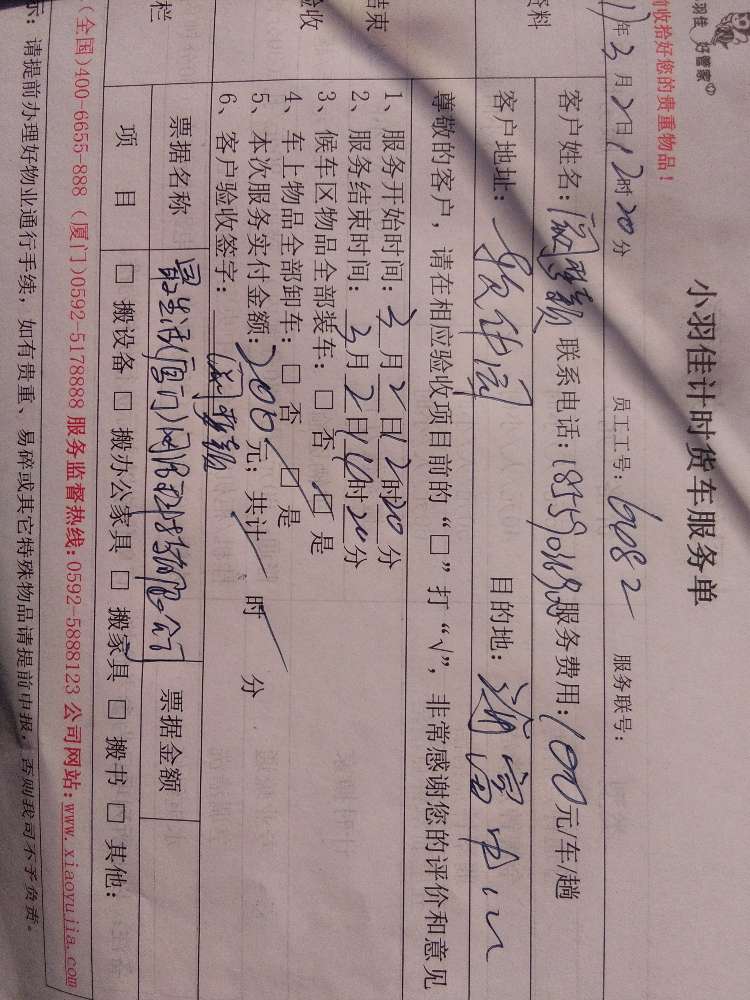 羽佳 好管家
小羽佳计时货车服务单
前收拾好您的贵重物品！
年3月2日12时20分 员工工号：6082 服务联号：
资料
客户姓名： 联系电话： 服务费用：100元/车/趟
客户地址： 软件园 目的地： 中心
尊敬的客户，请在相应验收项目前的“□”打“√”，非常感谢您的评价和意见
结束
验收
1、服务开始时间：3月2日12时20分
2、服务结束时间：3月2日14时20分
3、候车区物品全部装车：□ 否 ☑ 是
4、车上物品全部卸车：□ 否 ☑ 是
5、本次服务实付金额：200元；共计 时 分
6、客户验收签字：
栏
票据名称 票据金额
项 目 □ 搬设备 □ 搬办公家具 □ 搬家具 □ 搬书 □ 其他：
（全国)400-6655-888（厦门)0592-5178888 服务监督热线:0592-5888123 公司网站:www.xiaoyujia.com
示：请提前办理好物业通行手续，如有贵重、易碎或其它特殊物品请提前申报，否则我司不予负责。